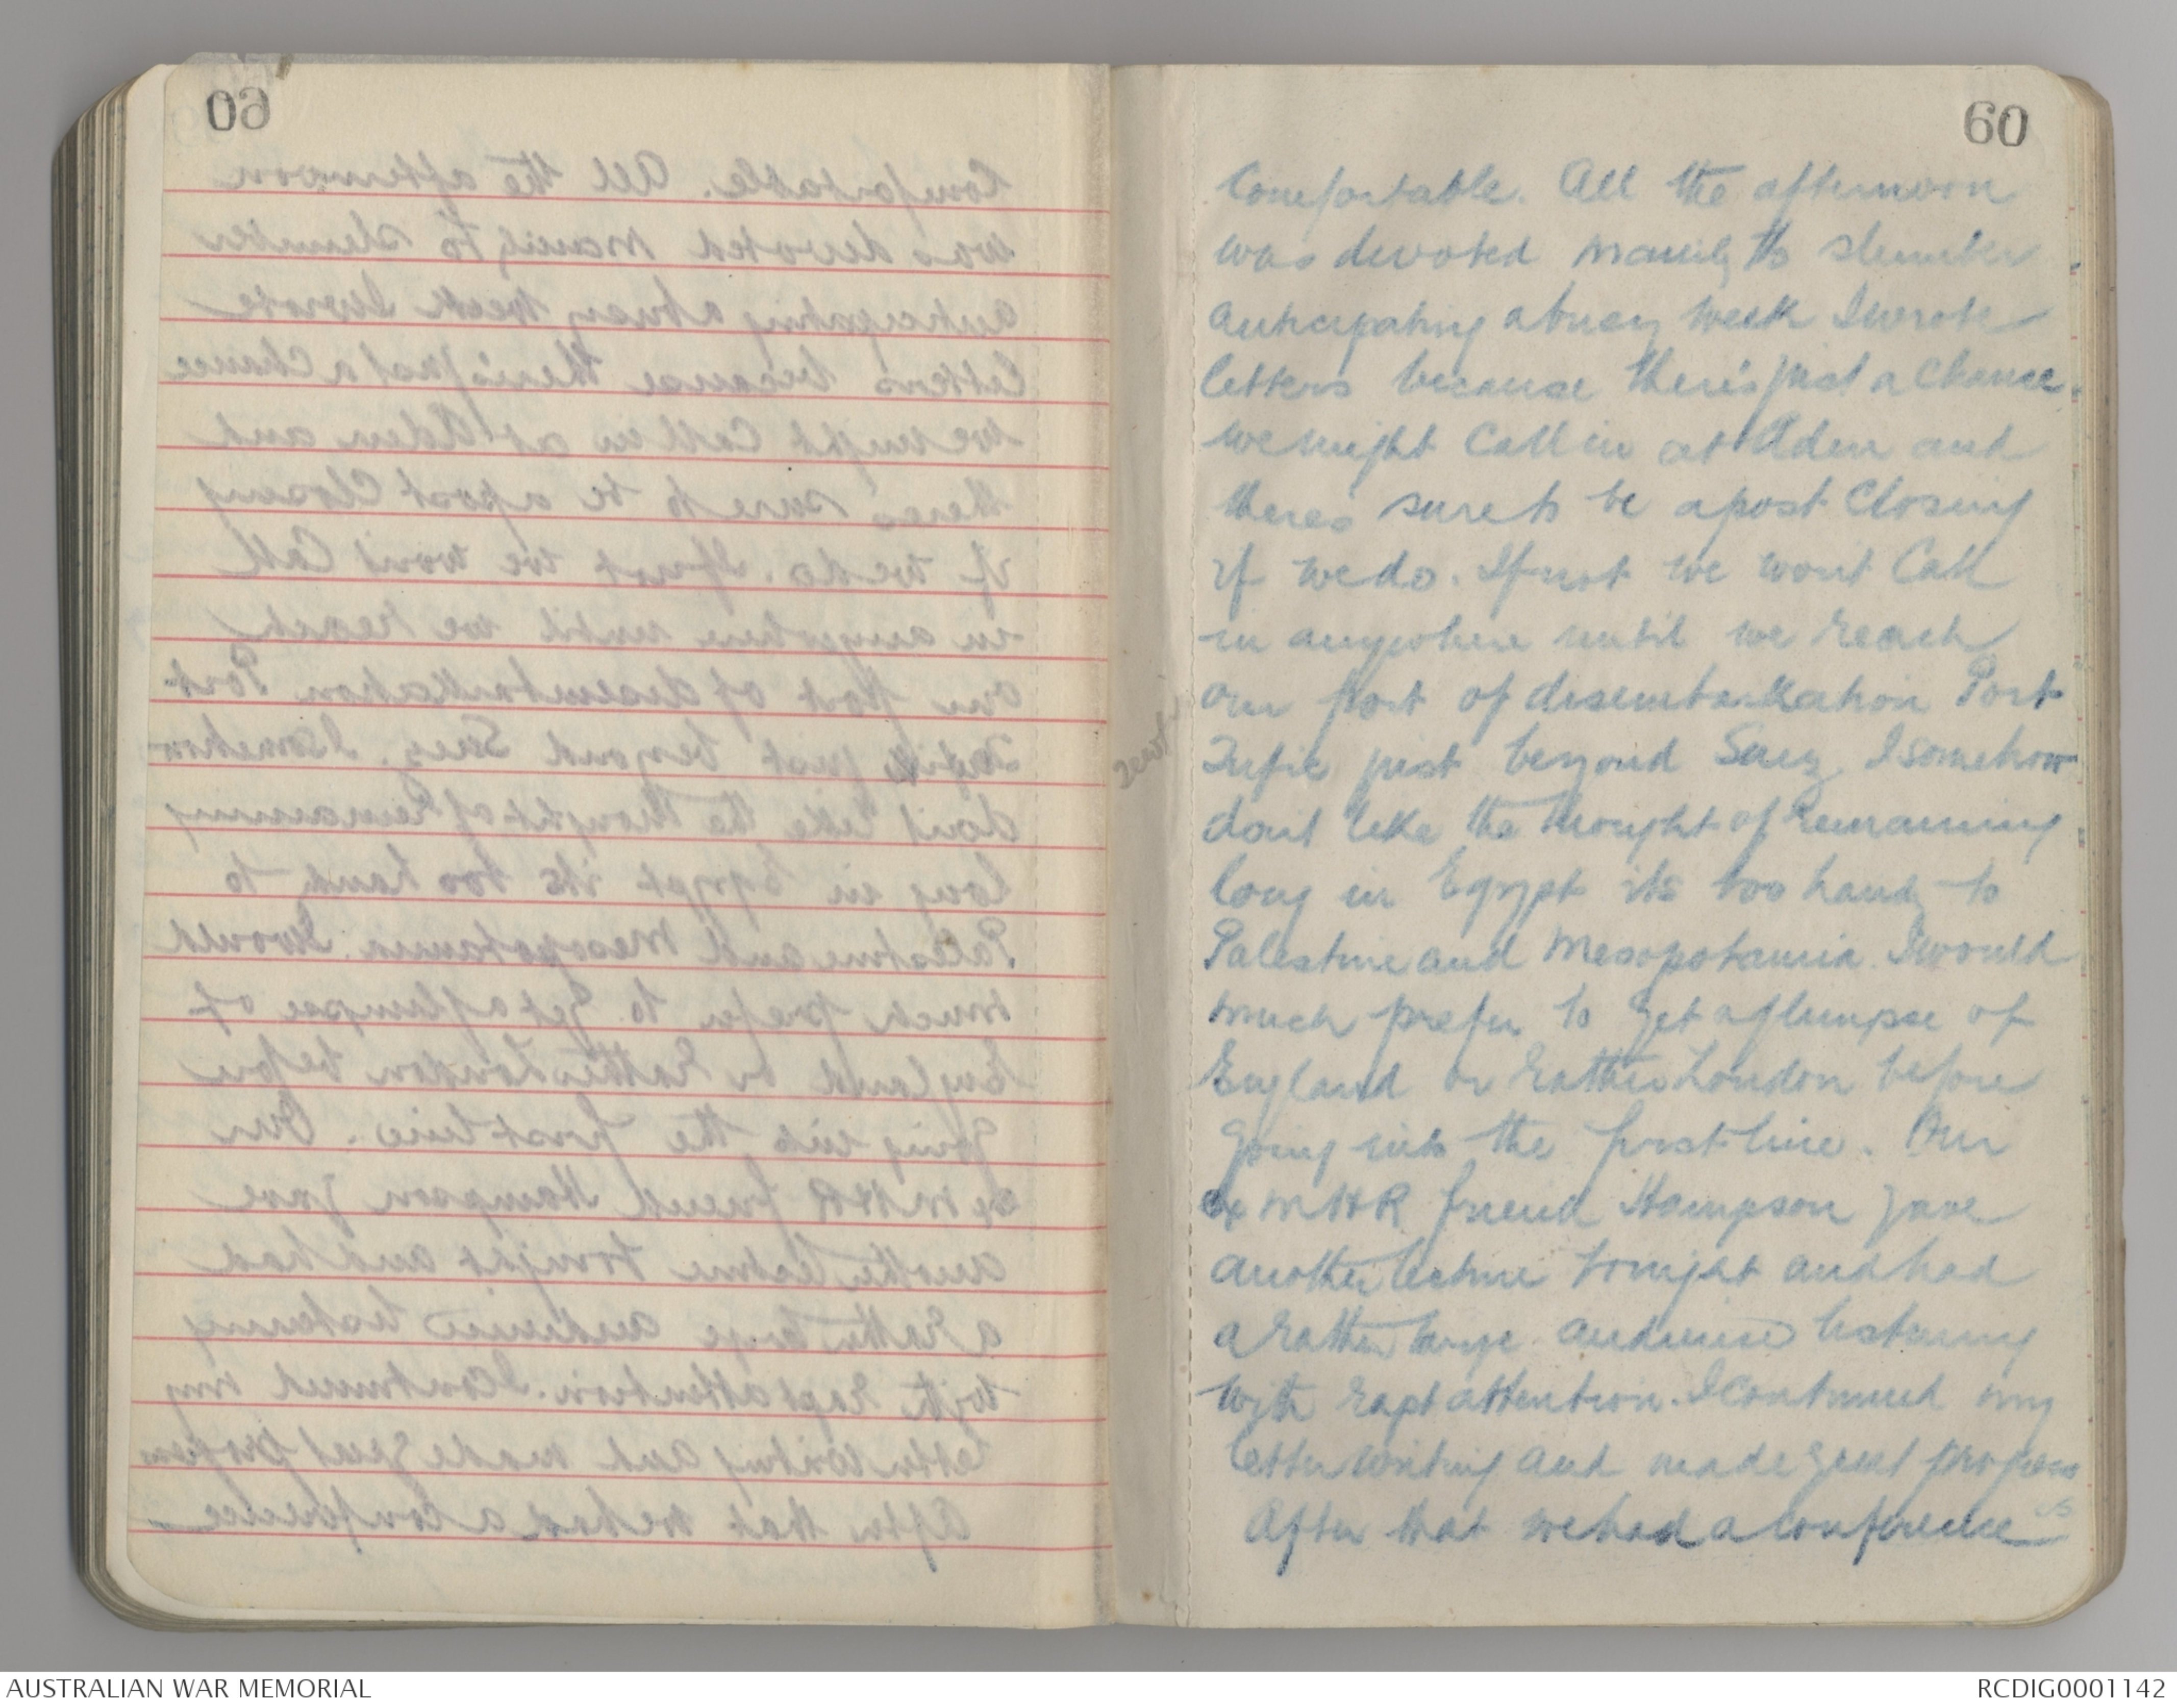 60
Comfortable. All the afternoon
was devoted mainly to slumber
anticipating a busy week I wrote
letters because there's just a chance
we might call in at Aden and
there's sure to be a post closing
if we do. If not we wont call
in anywhere until we reach
our port of disembarkation Port
Tufic just beyond Suez. I somehow
dont like the thought of remaining
long in Egypt its too handy to
Palestine and Mesopotamia. I would
much prefer to get a glimpse of
England or rather London before
going into the first line. Our
ex MHR friend Hampson gave
another lecture tonight and had
a rather large audience listening
with rapt attention. I continued my
letter writing and made great progress
After that we had a conference
AUSTRALIAN WAR MEMORIAL
RCDIG0001142